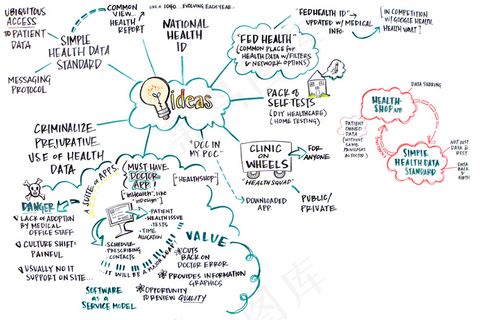 UBIQUITOUS
ACCESS
TO PATIENT
DATA
SIMPLE
HEALTH DATA
STANDARD
MESSAGING
PROTOCOL
COMMON
VIEW...
HEALTH
REPORT
LIKE A 1040... EVOLVING EACH YEAR...
NATIONAL
HEALTH
ID
"FED HEALTH"
(COMMON PLACE for
HEALTH DATA w/FILTERS
& NETWORK OPTIONS)
"FEDHEALTH ID"
UPDATED w/MEDICAL
INFO.
IN COMPETITION
w/GOOGLE HEALTH,
HEALTH VAULT
ideas
PACK OF
SELF-TESTS
(DIY HEALTHCARE)
(HOME TESTING)
"DOC IN
MY POC"
CLINIC
ON
WHEELS
"HEALTH SQUAD"
FOR
ANYONE
PUBLIC/
PRIVATE
DOWNLOADED
APP
CRIMINALIZE
PREJURATIVE
USE OF HEALTH
DATA
DATA SHARING
HEALTH-
SHOP APP
PATIENT
OWNED DATA
(WITHOUT
SAME
PRIVILEGES
AS DOCTOR)
SIMPLE
HEALTH DATA
STANDARD
NOT JUST
DATA @
REST
DATA
BACK
DANGER
LACK OF ADOPTION
BY MEDICAL
OFFICE STAFF
CULTURE SHIFT:
PAINFUL
USUALLY NO IT
SUPPORT ON SITE...
A SUITE of APPS.
MUST HAVE
DOCTOR
APP!
["HEALTHSHOP"]
PATIENT
HEALTH ISSUE
TESTS
TIME
ALLOCATION
SCHEDULE
PRESCRIBING
CONTACTS
WILL BE A MAJOR
SOFTWARE
as a
SERVICE MODEL
VALUE
CUTS
BACK ON
DOCTOR ERROR
PROVIDES INFORMATION
GRAPHICS
OPPORTUNITY
TO REVIEW QUALITY